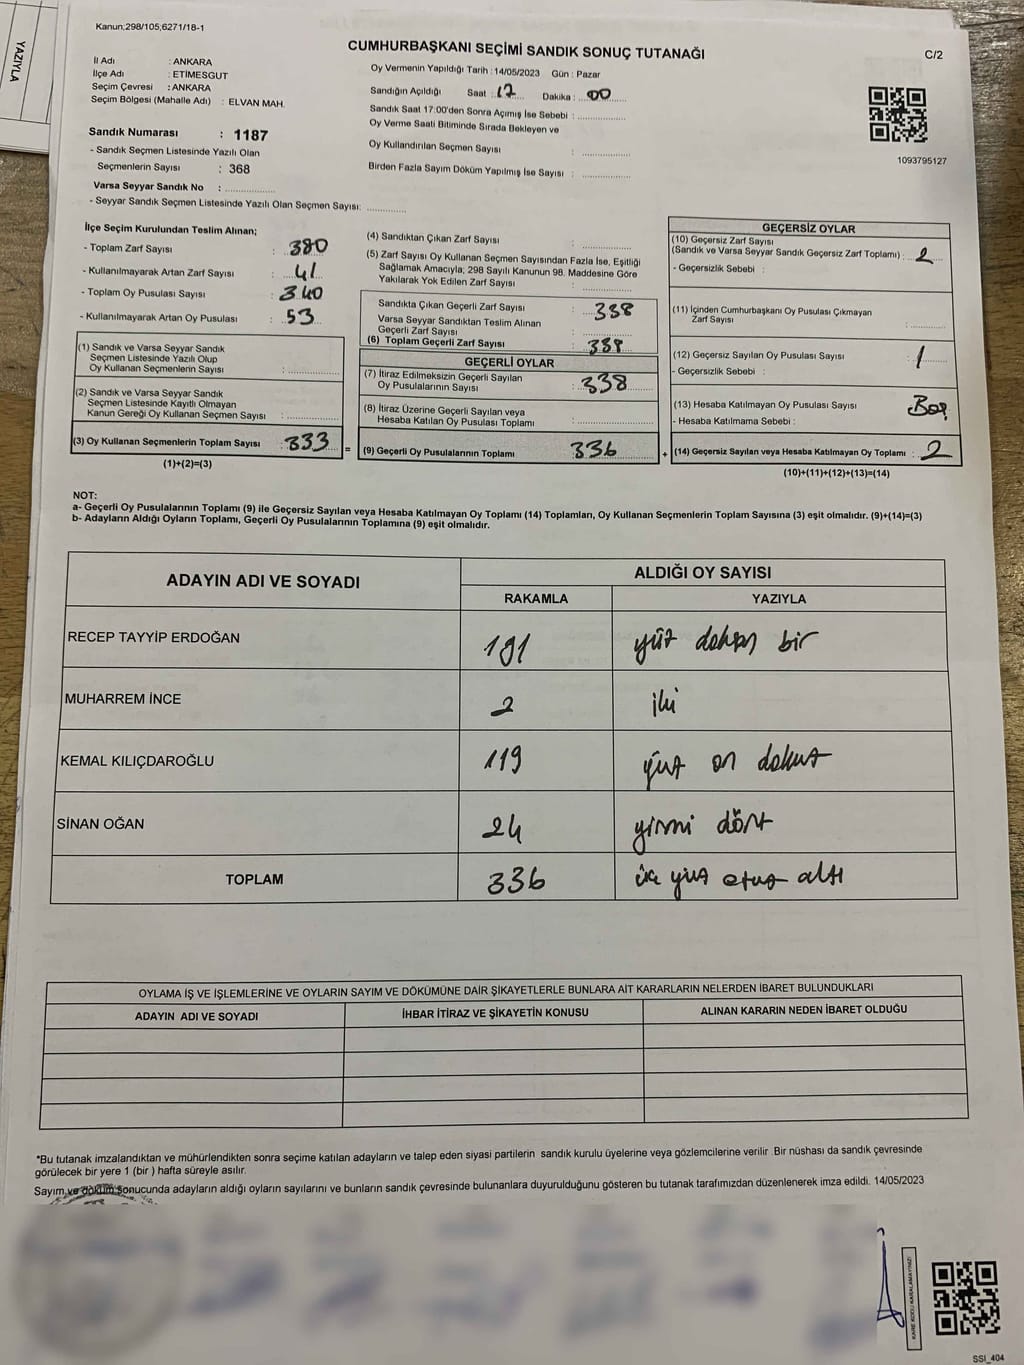 YAZIYLA
Kanun;298/105,6271/18-1
CUMHURBAŞKANI SEÇİMİ SANDIK SONUÇ TUTANAĞI
C/2
İl Adı : ANKARA
İlçe Adı : ETİMESGUT
Seçim Çevresi : ANKARA
Seçim Bölgesi (Mahalle Adı) : ELVAN MAH.
Sandık Numarası : 1187
- Sandık Seçmen Listesinde Yazılı Olan
Seçmenlerin Sayısı : 368
Varsa Seyyar Sandık No :
- Seyyar Sandık Seçmen Listesinde Yazılı Olan Seçmen Sayısı:
Oy Vermenin Yapıldığı Tarih : 14/05/2023 Gün : Pazar
Sandığın Açıldığı Saat : 17 Dakika : 00
Sandık Saat 17:00'den Sonra Açımış İse Sebebi :
Oy Verme Saati Bitiminde Sırada Bekleyen ve
Oy Kullandırılan Seçmen Sayısı :
Birden Fazla Sayım Döküm Yapılmış İse Sayısı :
1093795127
İlçe Seçim Kurulundan Teslim Alınan;
- Toplam Zarf Sayısı : 380
- Kullanılmayarak Artan Zarf Sayısı : 41
- Toplam Oy Pusulası Sayısı : 340
- Kullanılmayarak Artan Oy Pusulası : 53
(1) Sandık ve Varsa Seyyar Sandık
Seçmen Listesinde Yazılı Olup
Oy Kullanan Seçmenlerin Sayısı :
(2) Sandık ve Varsa Seyyar Sandık
Seçmen Listesinde Kayıtlı Olmayan
Kanun Gereği Oy Kullanan Seçmen Sayısı :
(3) Oy Kullanan Seçmenlerin Toplam Sayısı : 333 =
(1)+(2)=(3)
(4) Sandıktan Çıkan Zarf Sayısı :
(5) Zarf Sayısı Oy Kullanan Seçmen Sayısından Fazla İse, Eşitliği
Sağlamak Amacıyla; 298 Sayılı Kanunun 98. Maddesine Göre
Yakılarak Yok Edilen Zarf Sayısı :
Sandıkta Çıkan Geçerli Zarf Sayısı : 338
Varsa Seyyar Sandıktan Teslim Alınan
Geçerli Zarf Sayısı :
(6) Toplam Geçerli Zarf Sayısı : 338
GEÇERLİ OYLAR
(7) İtiraz Edilmeksizin Geçerli Sayılan
Oy Pusulalarının Sayısı : 338
(8) İtiraz Üzerine Geçerli Sayılan veya
Hesaba Katılan Oy Pusulası Toplamı :
(9) Geçerli Oy Pusulalarının Toplamı : 336 +
GEÇERSİZ OYLAR
(10) Geçersiz Zarf Sayısı
(Sandık ve Varsa Seyyar Sandık Geçersiz Zarf Toplamı) : 2
- Geçersizlik Sebebi :
(11) İçinden Cumhurbaşkanı Oy Pusulası Çıkmayan
Zarf Sayısı :
(12) Geçersiz Sayılan Oy Pusulası Sayısı : 1
- Geçersizlik Sebebi :
(13) Hesaba Katılmayan Oy Pusulası Sayısı : Boş
- Hesaba Katılmama Sebebi :
(14) Geçersiz Sayılan veya Hesaba Katılmayan Oy Toplamı : 2
(10)+(11)+(12)+(13)=(14)
NOT:
a- Geçerli Oy Pusulalarının Toplamı (9) ile Geçersiz Sayılan veya Hesaba Katılmayan Oy Toplamı (14) Toplamları, Oy Kullanan Seçmenlerin Toplam Sayısına (3) eşit olmalıdır. (9)+(14)=(3)
b- Adayların Aldığı Oyların Toplamı, Geçerli Oy Pusulalarının Toplamına (9) eşit olmalıdır.
ADAYIN ADI VE SOYADI
ALDIĞI OY SAYISI
RAKAMLA YAZIYLA
RECEP TAYYİP ERDOĞAN 191 yüz doksan bir
MUHARREM İNCE 2 iki
KEMAL KILIÇDAROĞLU 119 yüz on dokuz
SİNAN OĞAN 24 yirmi dört
TOPLAM 336 üç yüz otuz altı
OYLAMA İŞ VE İŞLEMLERİNE VE OYLARIN SAYIM VE DÖKÜMÜNE DAİR ŞİKAYETLERLE BUNLARA AİT KARARLARIN NELERDEN İBARET BULUNDUKLARI
ADAYIN ADI VE SOYADI İHBAR İTİRAZ VE ŞİKAYETİN KONUSU ALINAN KARARIN NEDEN İBARET OLDUĞU
*Bu tutanak imzalandıktan ve mühürlendikten sonra seçime katılan adayların ve talep eden siyasi partilerin sandık kurulu üyelerine veya gözlemcilerine verilir .Bir nüshası da sandık çevresinde
görülecek bir yere 1 (bir ) hafta süreyle asılır.
Sayım ve döküm sonucunda adayların aldığı oyların sayılarını ve bunların sandık çevresinde bulunanlara duyurulduğunu gösteren bu tutanak tarafımızdan düzenlenerek imza edildi. 14/05/2023
KARE KODU KARALAMAYINIZ!
SSI_404